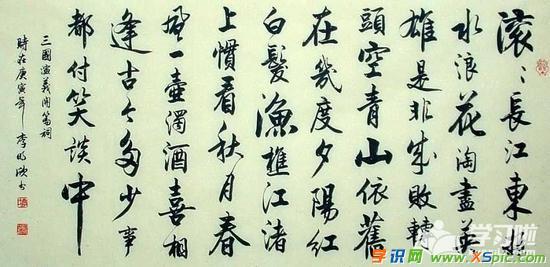 滚滚長江東逝
水浪花淘盡英
雄是非成敗轉
頭空青山依舊
在幾度夕陽紅
白髮漁樵江渚
上慣看秋月春
風一壺濁酒喜相
逢古今多少事
都付笑談中
三國演義開篇詞
時在庚寅年 李明欣书
学习啦
学识网 www.XSpic.com